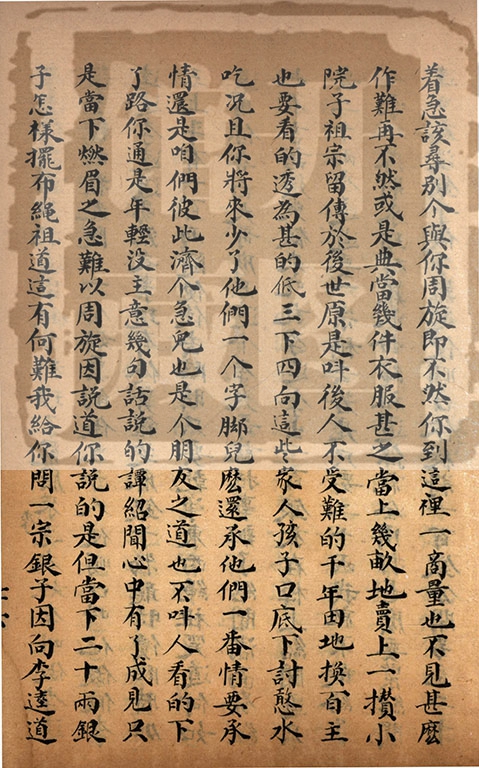 着急該尋別个與你周旋即不然你到這裡一商量也不見甚麽
作難再不然或是典當幾件衣服甚之當上幾畝地賣上一攅小
院子祖宗留傳於後世原是呌後人不受難的千年田地換百主
也要看的透為甚的低三下四向這些家人孩子口底下討憨水
吃况且你將來少了他們一个字脚兒麽還承他們一番情要承
情還是咱們彼此濟个急兒也是个朋友之道也不呌人看的下
了路你通是年輕没主意幾句話說的譚紹聞心中有了成見只
是當下燃眉之急難以周旋因說道你說的是但當下二十兩銀
子怎樣擺布繩祖道這有何難我給你問一宗銀子因向李逵道